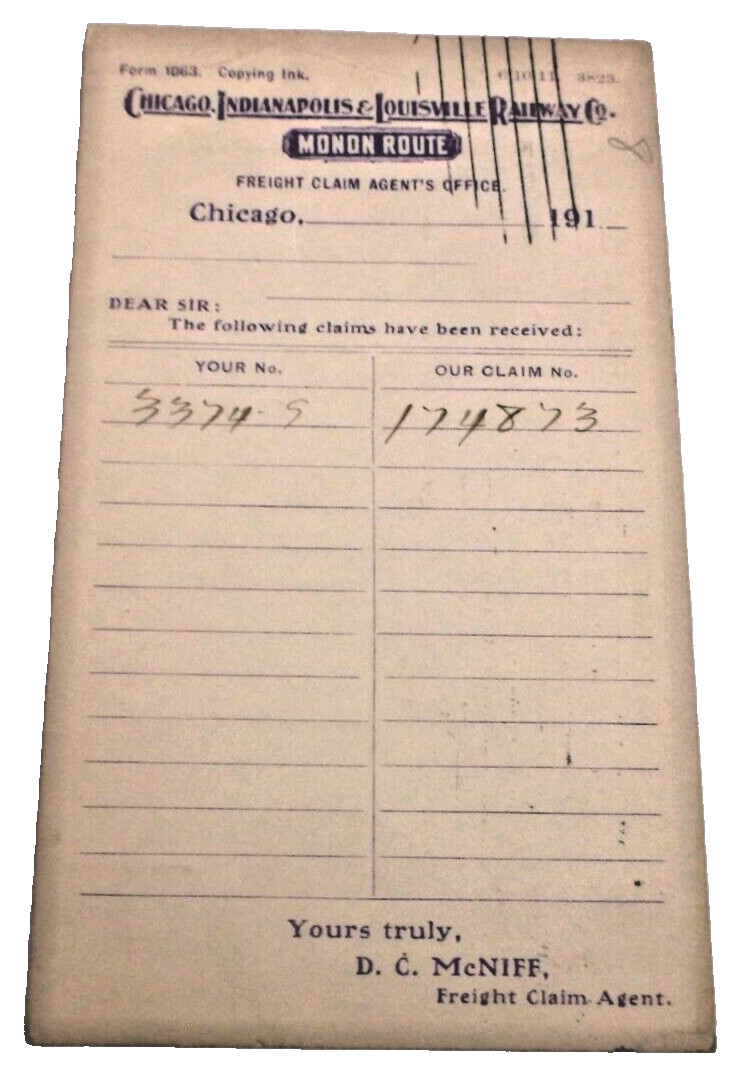 Form 1063. Copying Ink. 6 10 11 3823.
CHICAGO, INDIANAPOLIS & LOUISVILLE RAILWAY CO.
MONON ROUTE
FREIGHT CLAIM AGENT'S OFFICE.
Chicago, 191
DEAR SIR:
The following claims have been received:
YOUR No. OUR CLAIM No.
3374-S 174873
Yours truly,
D. C. McNIFF,
Freight Claim Agent.